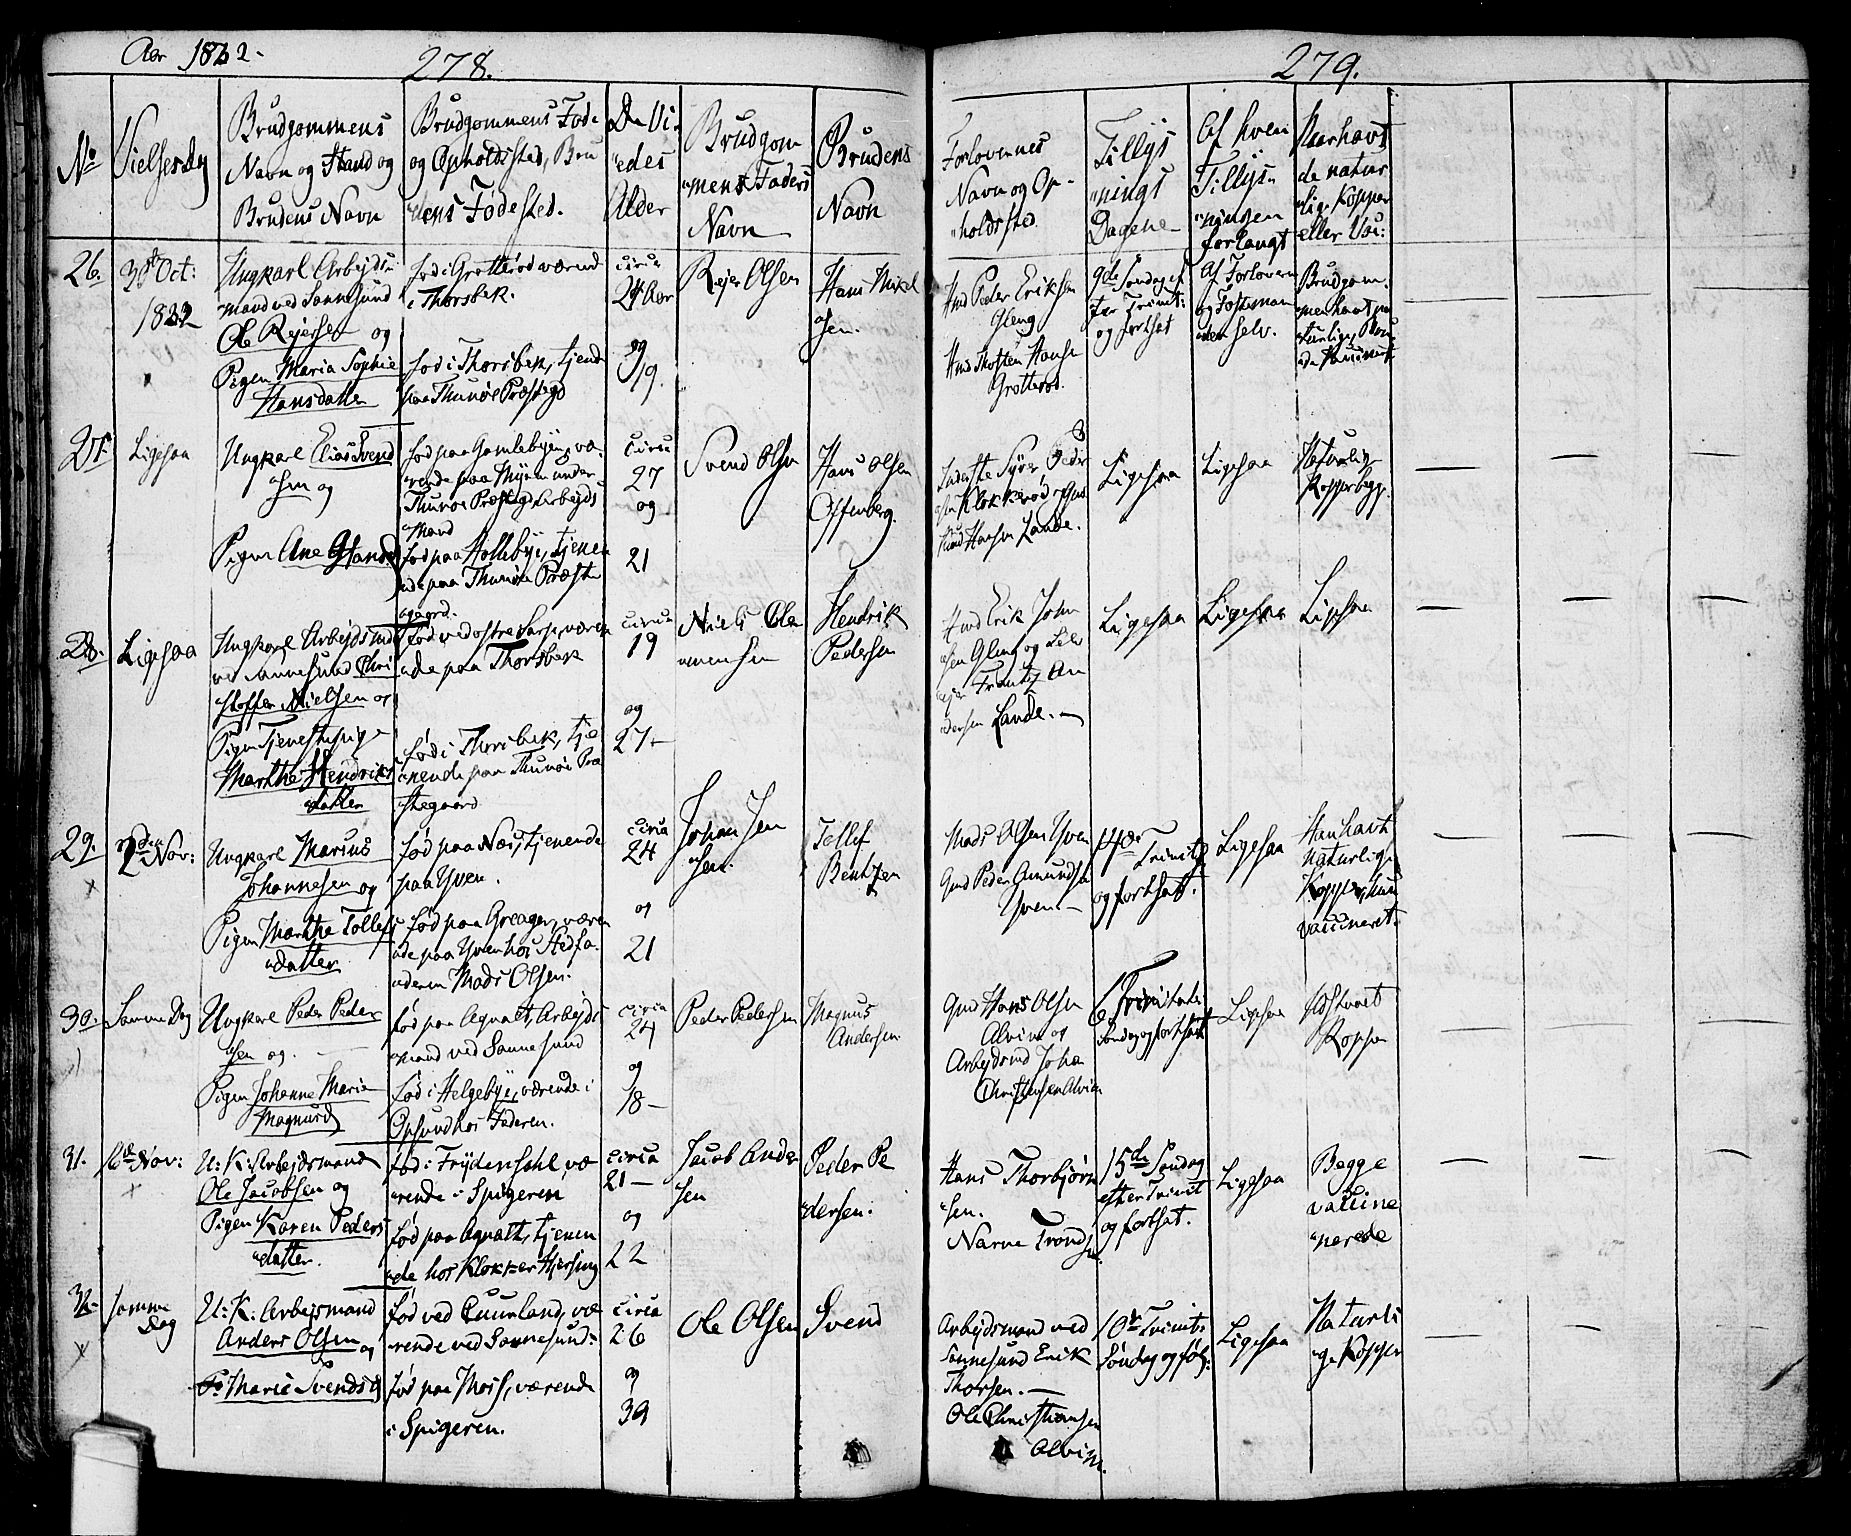 Aar 1832.
278.
279.
No
Vielsesdag
Brudgommens
Navn og Stand og
Brudens Navn
Brudgommens Føde
og Opholdssted, Bru
"dens Fødested.
De Vi
"edes
Alder
Brudgom
"mens Faders
Navn
Brudens
Navn
Forlovernes
Navn og Op-
"holdssted
Tillys
"nings
Dagene
Af hvem
Tillys-
"ningen
forlangt
Naar havt
de natur
"lige Kopper
eller Vac:
26.
30te Oct:
1832
Ungkarl Arbejds
mand ved Sannesund
Ole Rejersen og
Pigen Maria Sophie
Hansdatter
fød i Grotterød værend
i Thorsbek.
fød i Thorsbek, tjend
paa Thunøe Præstegd
circa
24 Aar
og
19.
Rejer Olsen
Hans Nikel
"sen.
Hmd Peder Eriksen
Gleng
Hmd Thosten Hanse
Grotterød.
9de Søndag ef
ter Trinit:
og fortsat
Af Forlovern
og Fæstman
"den selv.
Brudgom
men havt na
"turlige, Brud
27.
Ligesaa
Ungkarl Elias Svend
"sen og
Pigen Ane Hansd
fød paa Gamlebyen, væ-
"rende paa Myren under
Thunøe Præstegd Arbejds
"Mand
fød paa Hollebye, tjenen
"de paa Thunøe Præste
"gaard.
circa
27
og
21
Svend Olsen
Hans Olsen
Offenberg.
"sen Klokkerød og Gus
Hansen Lande.
Ligesaa
Ligesaa
Naturlige
Kopper begge
28.
Ligesaa
Ungkarl Arbejdsmd
ved Sannesund Chri
"stoffer Nielsen og
Pigen Tjenestepige
Marthe Hendriks
"datter
Fød ved østre Sarp, væren
"de paa Thorsbek
fød i Thorsbek, tje
"nende paa Thunøe Præ
"stegaard
circa
19
og
27-
Niels Cle
"mensen
Hendrik
Pedersen
Hmd Erik John
"sen Gleng og
Frantz An
"dersen Lande.
Ligesaa
Ligesaa
Ligesaa
29.
2den Nov:
Ungkarl Marius
Johannesen og
Pigen Marthe Tollefs
"datter
fød paa Næs, tjenende
paa Yven.
fød paa Greager, væren
"de paa Yven hos Stedfa
"deren Mads Olsen.
circa
24
og
21
Johan Jen
"sen.
Tollef
Bentzen
Mads Olsen Yven
Gmd Peder Amundsen
Yven
14de Trinit
og fortsatt.
Ligesaa
Han havt
Naturlige
Kopper, hun
vaccineret.
30.
Samme Dag
Ungkarl Peder Peder
"sen og
Pigen Johanne Marie
Magnusd
fød paa Agnalt, Arbejds
"mand ved Sannesund
fød i Helgebye, værende i
Opsund hos Faderen.
circa
24
og
18-
Peder Pedersen
Magnus
Andersen
Gmd Hans Olsen
Alvim og
Arbejdsmd Johan
Christensen Alvim
Trinitatis
Søndag og fortsat
Ligesaa
Kopper
31.
6te Nov:
U: K: Arbejdsmand
Ole Jacobsen og
Pigen Karen Peders
"datter.
fød i Frydensdahl væ
"rende i Spigeren
fød paa Agnalt, tjenen
"de hos Klokker Hjersing
circa
21-
og
22
Jacob Ander
sen
Peder Pe
"dersen.
Hans Thorbjørn
"sen.
Narve Trondsen
15de Søndag
efter Trinit
og fortsat.
Ligesaa
Begge
vaccine
"nerede
32.
samme
Dag
U: K: Arbejsmand
Anders Olsen og
P: Marie Svendsd
fød ved Cuurland, væ
"rende ved Sannesund
fød paa Moss, værende
i Spigeren.
circa
26
og
39
Ole Olsen
Svend
Arbejdsmand ved
Sannesund Erik
Thorsen.
Ole Christiansen
Alvim.
10de Trinit:
Søndag og føl:
Ligesaa
Naturli
"ge Kopper